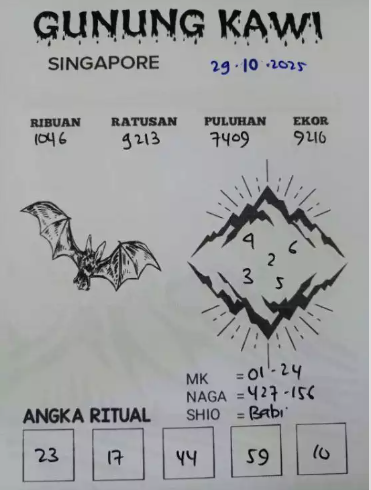 GUNUNG KAWI
SINGAPORE 29·10·2025
RIBUAN RATUSAN PULUHAN EKOR
1046 9213 7409 9216
4 6
2
3 5
MK = 01-24
NAGA = 427-156
SHIO = Babi
ANGKA RITUAL
23 17 44 59 10